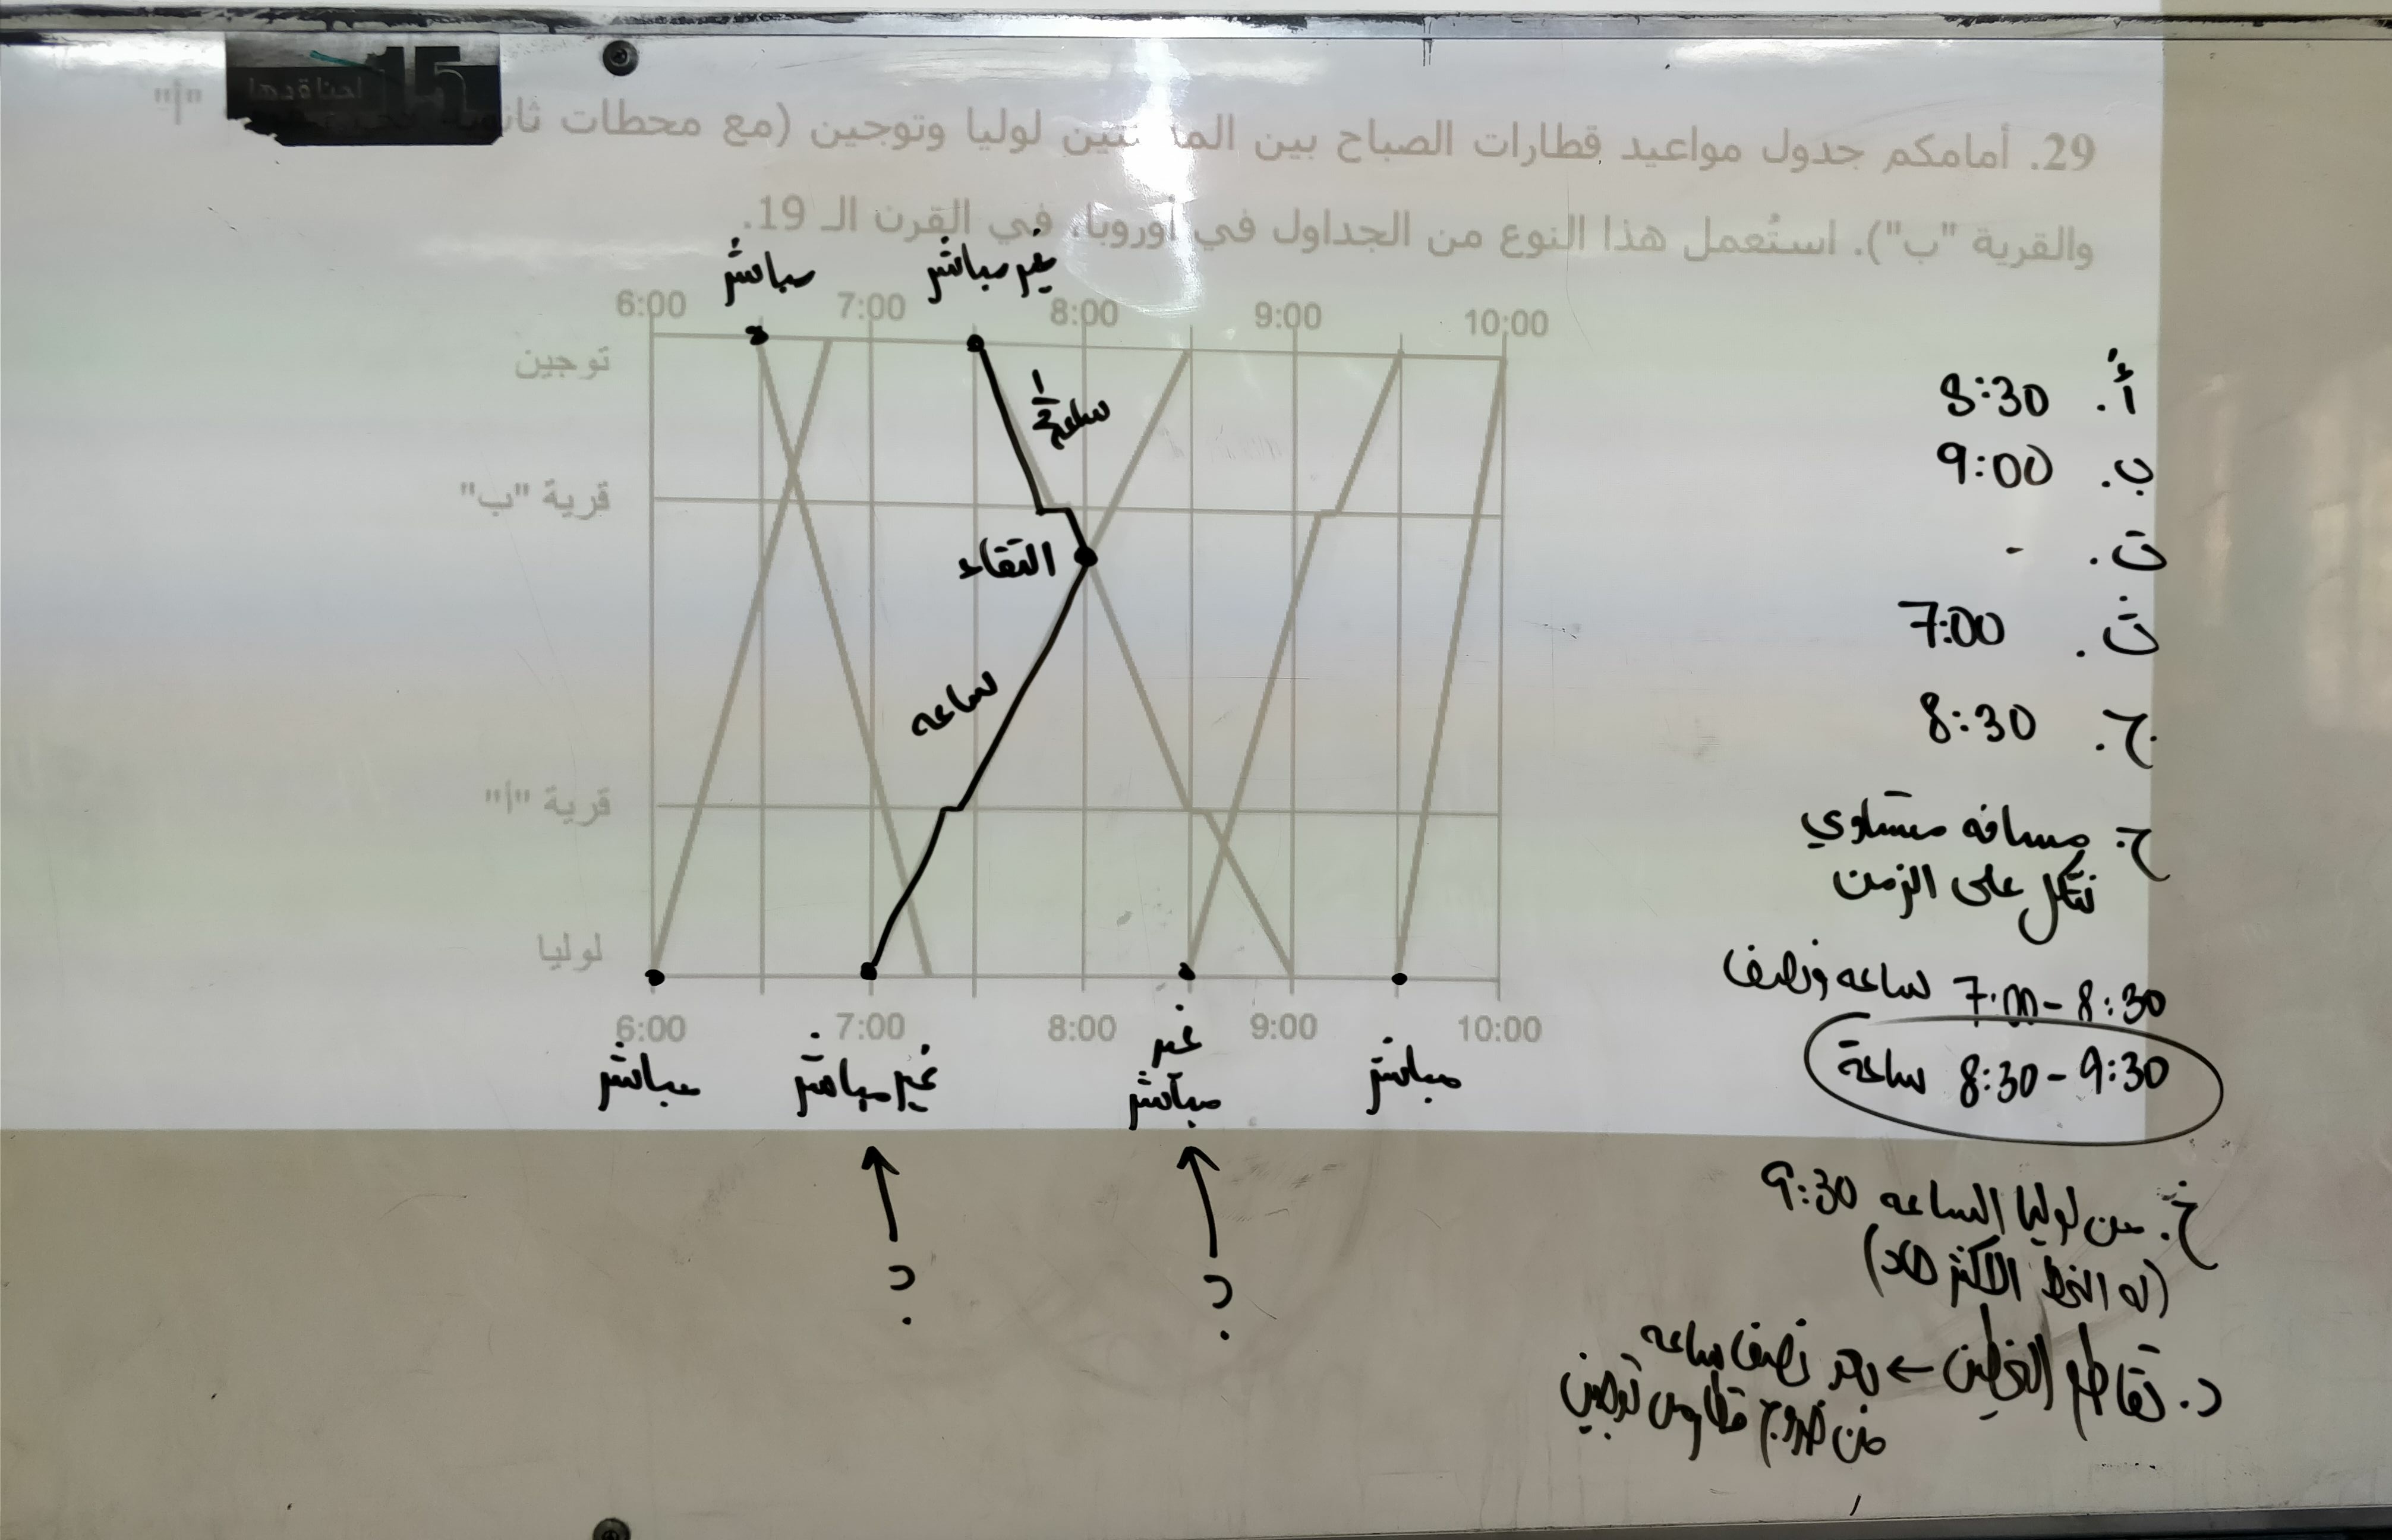 15
29. أمامكم جدول مواعيد قطارات الصباح بين المدينتين لوليا وتوجين (مع محطات "أ"
والقرية "ب"). استُعمل هذا النوع من الجداول في أوروبا، في القرن الـ 19.
مباشر
غير مباشر
6:00 7:00 8:00 9:00 10:00
توجين
قرية "ب"
قرية "أ"
لوليا
1/2 ساعة
التقاء
ساعه
6:00 7:00 8:00 9:00 10:00
مباشر
غير مباشر
غير
مباشر
مباشر
؟
؟
أ. 8:30
ب. 9:00
ت. -
ث. 7:00
ج. 8:30
ح. مسافه متساوي
نتكل على الزمن
7:00-8:30 ساعه ونصف
8:30-9:30 ساعة
خ. من لوليا الساعه 9:30
(له الخط الاكثر حاد)
د. تقاطع الخطين ← بعد نصف ساعه
من خروج قطار من توجين